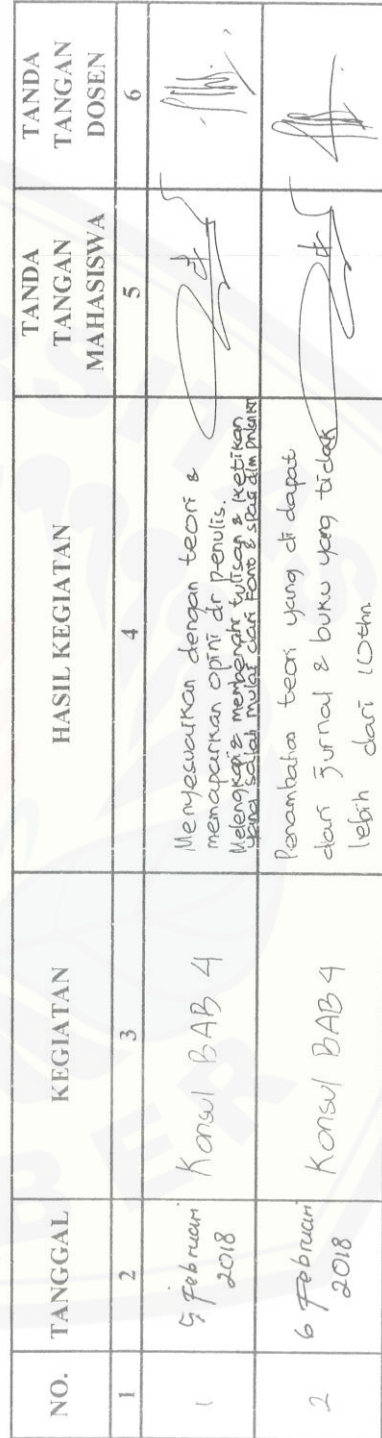 NO. TANGGAL KEGIATAN HASIL KEGIATAN TANDA TANGAN MAHASISWA TANDA TANGAN DOSEN
1 2 3 4 5 6
1
5 Februari
2018
Konsul BAB 4
Menyesuaikan dengan teori &
memaparkan opini dr penulis.
Melengkapi & membenahi tulisan & ketikan
yang salah mulai dari Font & spasi dlm
2
6 Februari
2018
Konsul BAB 4
Penambahan teori yang di dapat
dari Jurnal & buku yang tidak
lebih dari 10thn